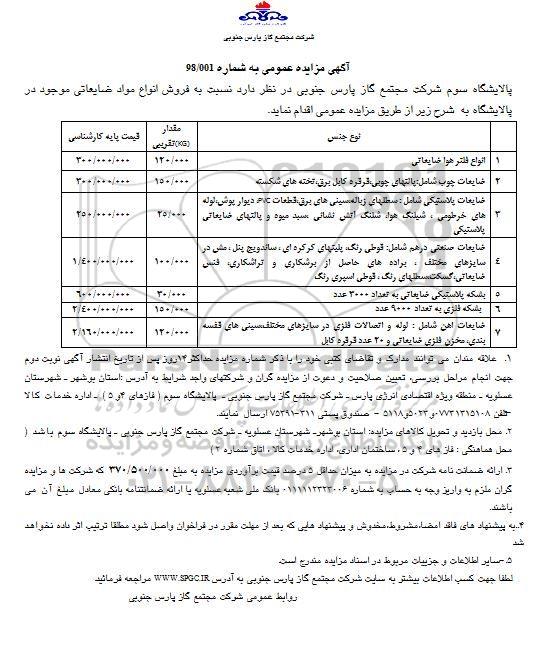 شرکت مجتمع گاز پارس جنوبی
آگهی مزایده عمومی به شماره 98/001
پالایشگاه سوم شرکت مجتمع گاز پارس جنوبی در نظر دارد نسبت به فروش انواع مواد ضایعاتی موجود در
پالایشگاه به شرح زیر از طریق مزایده عمومی اقدام نماید.
نوع جنس
مقدار
تقریبی(KG)
قیمت پایه کارشناسی
۱ انواع فلتر هوا ضایعاتی ۱۲۰/۰۰۰ ۳۰۰/۰۰۰/۰۰۰
۲ ضایعات چوب شامل:پالتهای چوبی،قرقره کابل برق،تخته های شکسته ۱۵۰/۰۰۰ ۳۰۰/۰۰۰/۰۰۰
۳ ضایعات پلاستیکی شامل : سطلهای زباله،سینی های برق،قطعات PVC، دیوار پوش،لوله
های خرطومی ، شیلنگ هوا، شلنگ آتش نشانی ،سبد میوه و پالتهای ضایعاتی
پلاستیکی
۲۵/۰۰۰ ۲۵۰/۰۰۰/۰۰۰
۴ ضایعات صنعتی درهم شامل: قوطی رنگ، پلیتهای کرکره ای ، ساندویچ پنل ، مش در
سایزهای مختلف ، براده های حاصل از برشکاری و تراشکاری، فنس
ضایعاتی،گسکت،سطلهای رنگ ، قوطی اسپری رنگ
۱۰۰/۰۰۰ ۱/۴۰۰/۰۰۰/۰۰۰
۵ بشکه پلاستیکی ضایعاتی به تعداد ۳۰۰۰ عدد ۳۰/۰۰۰ ۶۰۰/۰۰۰/۰۰۰
۶ بشکه فلزی به تعداد ۹۰۰۰ عدد ۱۵۰/۰۰۰ ۲/۴۰۰/۰۰۰/۰۰۰
۷ ضایعات آهن شامل : لوله و اتصالات فلزی در سایزهای مختلف،سینی های قفسه
بندی،مخزن فلزی ضایعاتی و ۲۰ عدد قرقره کابل
۱۲۰/۰۰۰ ۲/۱۶۰/۰۰۰/۰۰۰
۱. علاقه مندان می توانند مدارک و تقاضای کتبی خود را با ذکر شماره مزایده حداکثر۱۴روز پس از تاریخ انتشار آگهی نوبت دوم
جهت انجام مراحل بررسی، تعیین صلاحیت و دعوت از مزایده گران و شرکتهای واجد شرایط به آدرس :استان بوشهر – شهرستان
عسلویه – منطقه ویژه اقتصادی انرژی پارس – شرکت مجتمع گاز پارس جنوبی – پالایشگاه سوم ( فازهای ۴و ۵ ) – اداره خدمات کالا
–تلفن ۰۷۷۳۱۳۱۵۱۰۸-۵۰۲۳و۵۱۱۸ – صندوق پستی ۳۱۱-۷۵۳۹۱ ارسال نمایند.
۲. محل بازدید و تحویل کالاهای مزایده: استان بوشهر– شهرستان عسلویه – شرکت مجتمع گاز پارس جنوبی – پالایشگاه سوم باشد (
محل هماهنگی : فاز های ۴ و ۵ ، ساختمان اداری، اداره خدمات کالا ، اتاق شماره ۲ )
۳. ارائه ضمانت نامه شرکت در مزایده به میزان حداقل ۵ درصد قیمت برآوردی مزایده به مبلغ ۳۷۰/۵۰۰/۰۰۰ که شرکت ها و مزایده
گران ملزم به واریز وجه به حساب به شماره ۰۱۱۱۱۱۲۳۳۳۰۰۶ بانک ملی شعبه عسلویه یا ارائه ضمانتنامه بانکی معادل مبلغ آن می
باشند.
۴.به پیشنهاد های فاقد امضا،مشروط،مخدوش و پیشنهاد هایی که بعد از مهلت مقرر در فراخوان واصل شود مطلقا ترتیب اثر داده نخواهد
شد
۵.-سایر اطلاعات و جزییات مربوط در اسناد مزایده مندرج است.
لطفا جهت کسب اطلاعات بیشتر به سایت شرکت مجتمع گاز پارس جنوبی به آدرس WWW.SPGC.IR مراجعه فرمائید.
روابط عمومی شرکت مجتمع گاز پارس جنوبی
ParsNamadData
۰۲۱-۸۸۳۴۹۶۷۰-۵